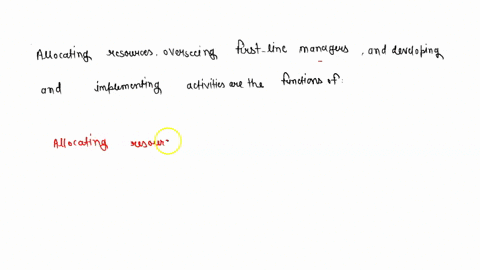 Allocating resources. overseeing first-line managers, and developing
and implementing activities are the functions of:
Allocating resour